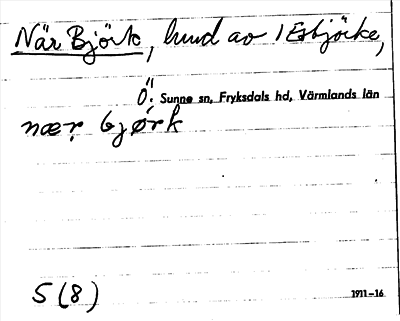 När Björk, hmd av 1 Esbjörke,
Ö. Sunne sn, Fryksdals hd, Värmlands län
nær bjørk
5 (8)
1911–16